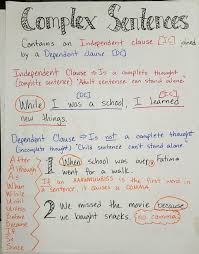 Complex Sentences
Contains an Independent clause [IC] joined
by a Dependent clause [DC]
Independent Clause → Is a complete thought
(complete sentence) "Adult sentence can stand alone"
[DC] [IC]
While I was a school, I learned
new things.
Dependent Clause → Is not a complete thought
(incomplete thought) "Child sentence can't stand alone"
After
Although
As
When
While
Until
Unless
Before
Because
If
Since
1 When school was over, Fatima
went for a walk.
If an AAAWWUUBBIS is the first word in
a sentence, it causes a COMMA.
2 We missed the movie because
we bought snacks. no comma